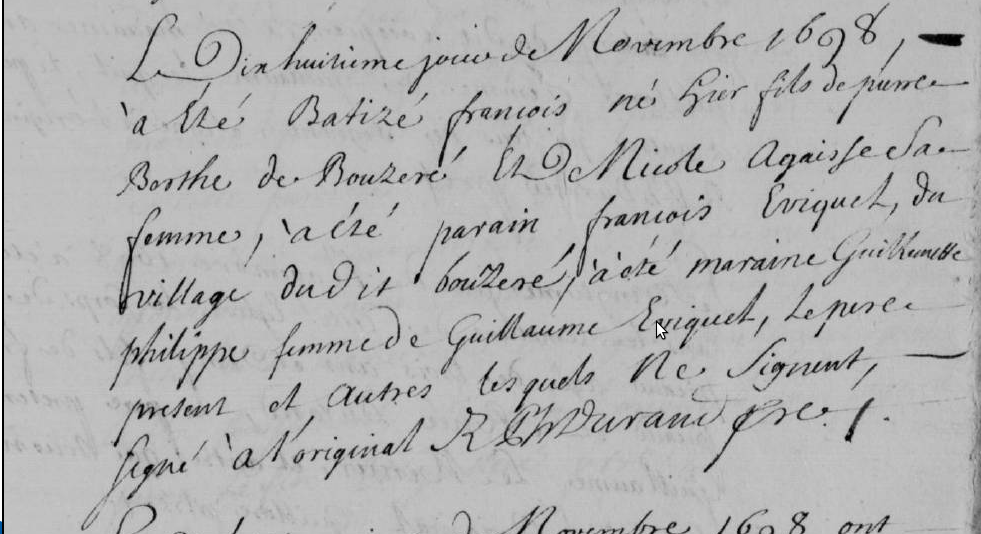 Le Dixhuitieme jour de Novembre 1698,
à Eté Batizé françois né hier fils de pierre
Borthe de Bouzeré Et De Nicole Agaisse Sa
femme, à été parain françois Eviquet, du
village dudit bouzeré, à été maraine Guillemette
philippe femme de Guillaume Eviquet, Le pere
present et Autres lesquels Ne Signent,
signé à l'original R Durand pre.
Novembre 1698 ont